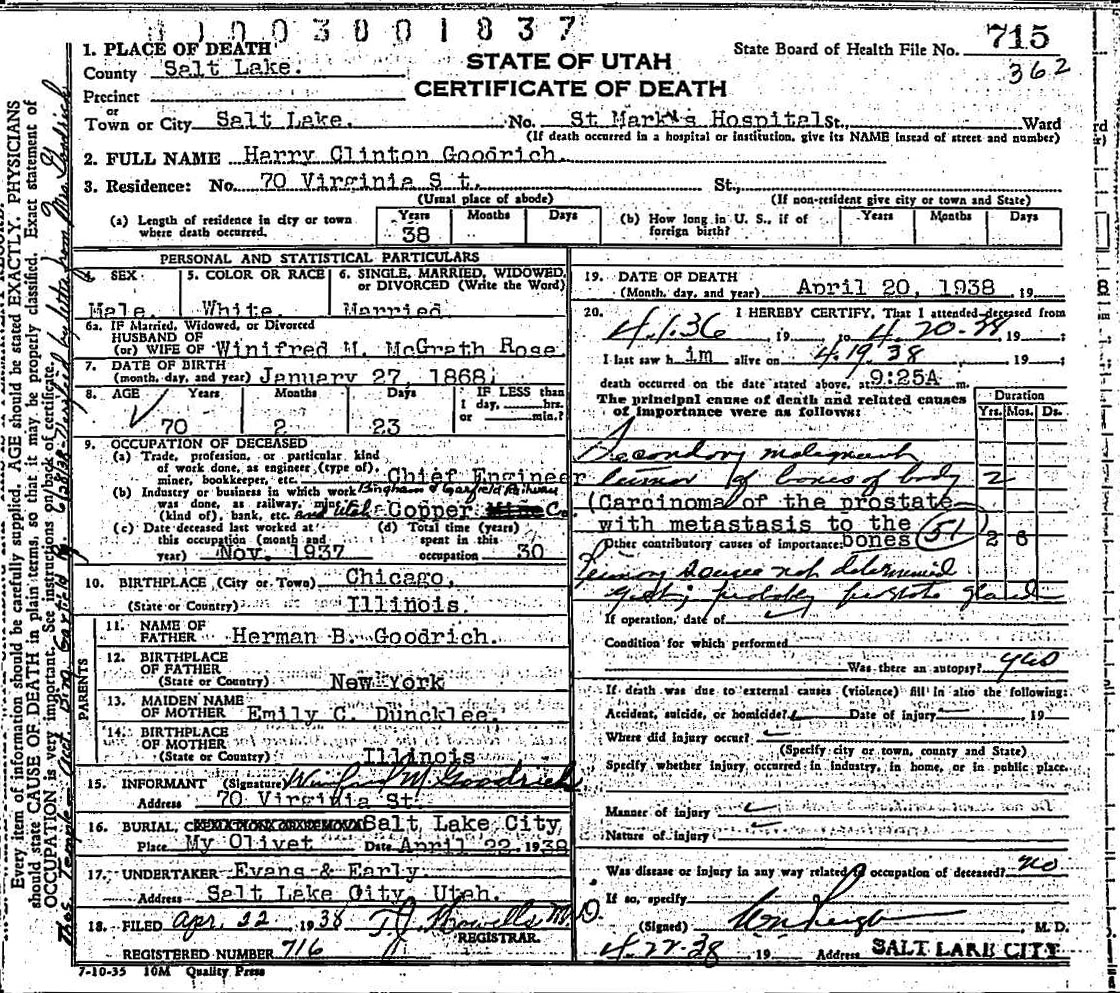 01003801837
1. PLACE OF DEATH
County Salt Lake.
Precinct
or
Town or City Salt Lake. No. St Mark's Hospital St., Ward
(If death occurred in a hospital or institution, give its NAME instead of street and number)
STATE OF UTAH
CERTIFICATE OF DEATH
State Board of Health File No. 715
362
2. FULL NAME Harry Clinton Goodrich.
3. Residence: No. 70 Virginia S t. St.,
(Usual place of abode) (If non-resident give city or town and State)
(a) Length of residence in city or town where death occurred. Years 38 Months Days
(b) How long in U. S., if of foreign birth? Years Months Days
PERSONAL AND STATISTICAL PARTICULARS
4. SEX Male.
5. COLOR OR RACE White.
6. SINGLE, MARRIED, WIDOWED, or DIVORCED (Write the Word) Married
6a. IF Married, Widowed, or Divorced
HUSBAND OF
(or) WIFE OF Winifred M. McGrath Rose
7. DATE OF BIRTH
(month, day, and year) January 27, 1868.
8. AGE Years 70 Months 2 Days 23
IF LESS than
1 day, hrs.
or min.?
9. OCCUPATION OF DECEASED
(a) Trade, profession, or particular kind
of work done, as engineer (type of),
miner, bookkeeper, etc. Chief Engineer
(b) Industry or business in which work Bingham & Garfield Railway
was done, as railway, mine
(kind of), bank, etc. and Utah Copper Mine Co.
(c) Date deceased last worked at
this occupation (month and
year) Nov. 1937
(d) Total time (years)
spent in this
occupation 30
10. BIRTHPLACE (City or Town) Chicago,
(State or Country) Illinois.
PARENTS
11. NAME OF
FATHER Herman B. Goodrich.
12. BIRTHPLACE
OF FATHER
(State or Country) New York
13. MAIDEN NAME
OF MOTHER Emily C. Duncklee.
14. BIRTHPLACE
OF MOTHER
(State or Country) Illinois
15. INFORMANT (Signature) Winifred M Goodrich
Address 70 Virginia St.
16. BURIAL, CREMATION OR REMOVAL Salt Lake City
Place My Olivet Date April 22, 1938
17. UNDERTAKER Evans & Early.
Address Salt Lake City, Utah.
18. FILED Apr. 22 1938 T.J. Howells M.D.
REGISTRAR.
REGISTERED NUMBER 716
7-10-35 10M Quality Press
19. DATE OF DEATH
(Month, day, and year) April 20, 1938 19
20. I HEREBY CERTIFY, That I attended deceased from
4.1.36 19 to 4.20-38 19 ;
I last saw h im alive on 4.19.38 19 ;
death occurred on the date stated above, at 9:25A m.
The principal cause of death and related causes
of importance were as follows:
Duration
Yrs. Mos. Ds.
Secondary malignant
tumor of bones of body 2
(Carcinoma of the prostate
with metastasis to the
bones 51) 2 6
Other contributory causes of importance:
Primary source not determined
probably prostate gland
If operation, date of
Condition for which performed
Was there an autopsy? yes
If death was due to external causes (violence) fill in also the following:
Accident, suicide, or homicide? Date of injury 19
Where did injury occur?
(Specify city or town, county and State)
Specify whether injury occurred in industry, in home, or in public place.
Manner of injury
Nature of injury
Was disease or injury in any way related to occupation of deceased? no
If so, specify
(Signed) M. D.
4.22-38 19 Address SALT LAKE CITY
Every item of information should be carefully supplied. AGE should be stated EXACTLY. PHYSICIANS
should state CAUSE OF DEATH in plain terms, so that it may be properly classified. Exact statement of
OCCUPATION is very important. See instructions on back of certificate.
by letter from Mrs. Goodrich